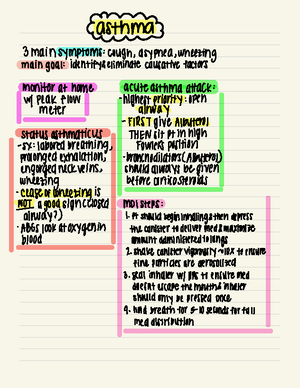 asthma
3 main symptoms: cough, dyspnea, wheezing
main goal: identify & eliminate causative factors
monitor at home
w/ peak flow
meter
acute asthma attack:
- highest priority: open
airway
- FIRST give Albuterol
THEN sit pt in high
Fowlers position
- bronchodilators (Albuterol)
should always be given
before corticosteroids
status asthmaticus
- sx: labored breathing,
prolonged exhalation,
engorged neck veins,
wheezing
- cease of wheezing is
NOT a good sign (closed
airway?)
- ABGs look at oxygen in
blood
MDI steps:
1. Pt should begin inhaling then depress
the canister to deliver med & maximize
amount administered to lungs
2. shake canister vigorously to ensure
fine particles are aerosolized
3. seal inhaler w/ lips to ensure med
doesnt escape the mouth & inhaler
should only be pressed once
4. hold breath for 5-10 seconds for full
med distribution